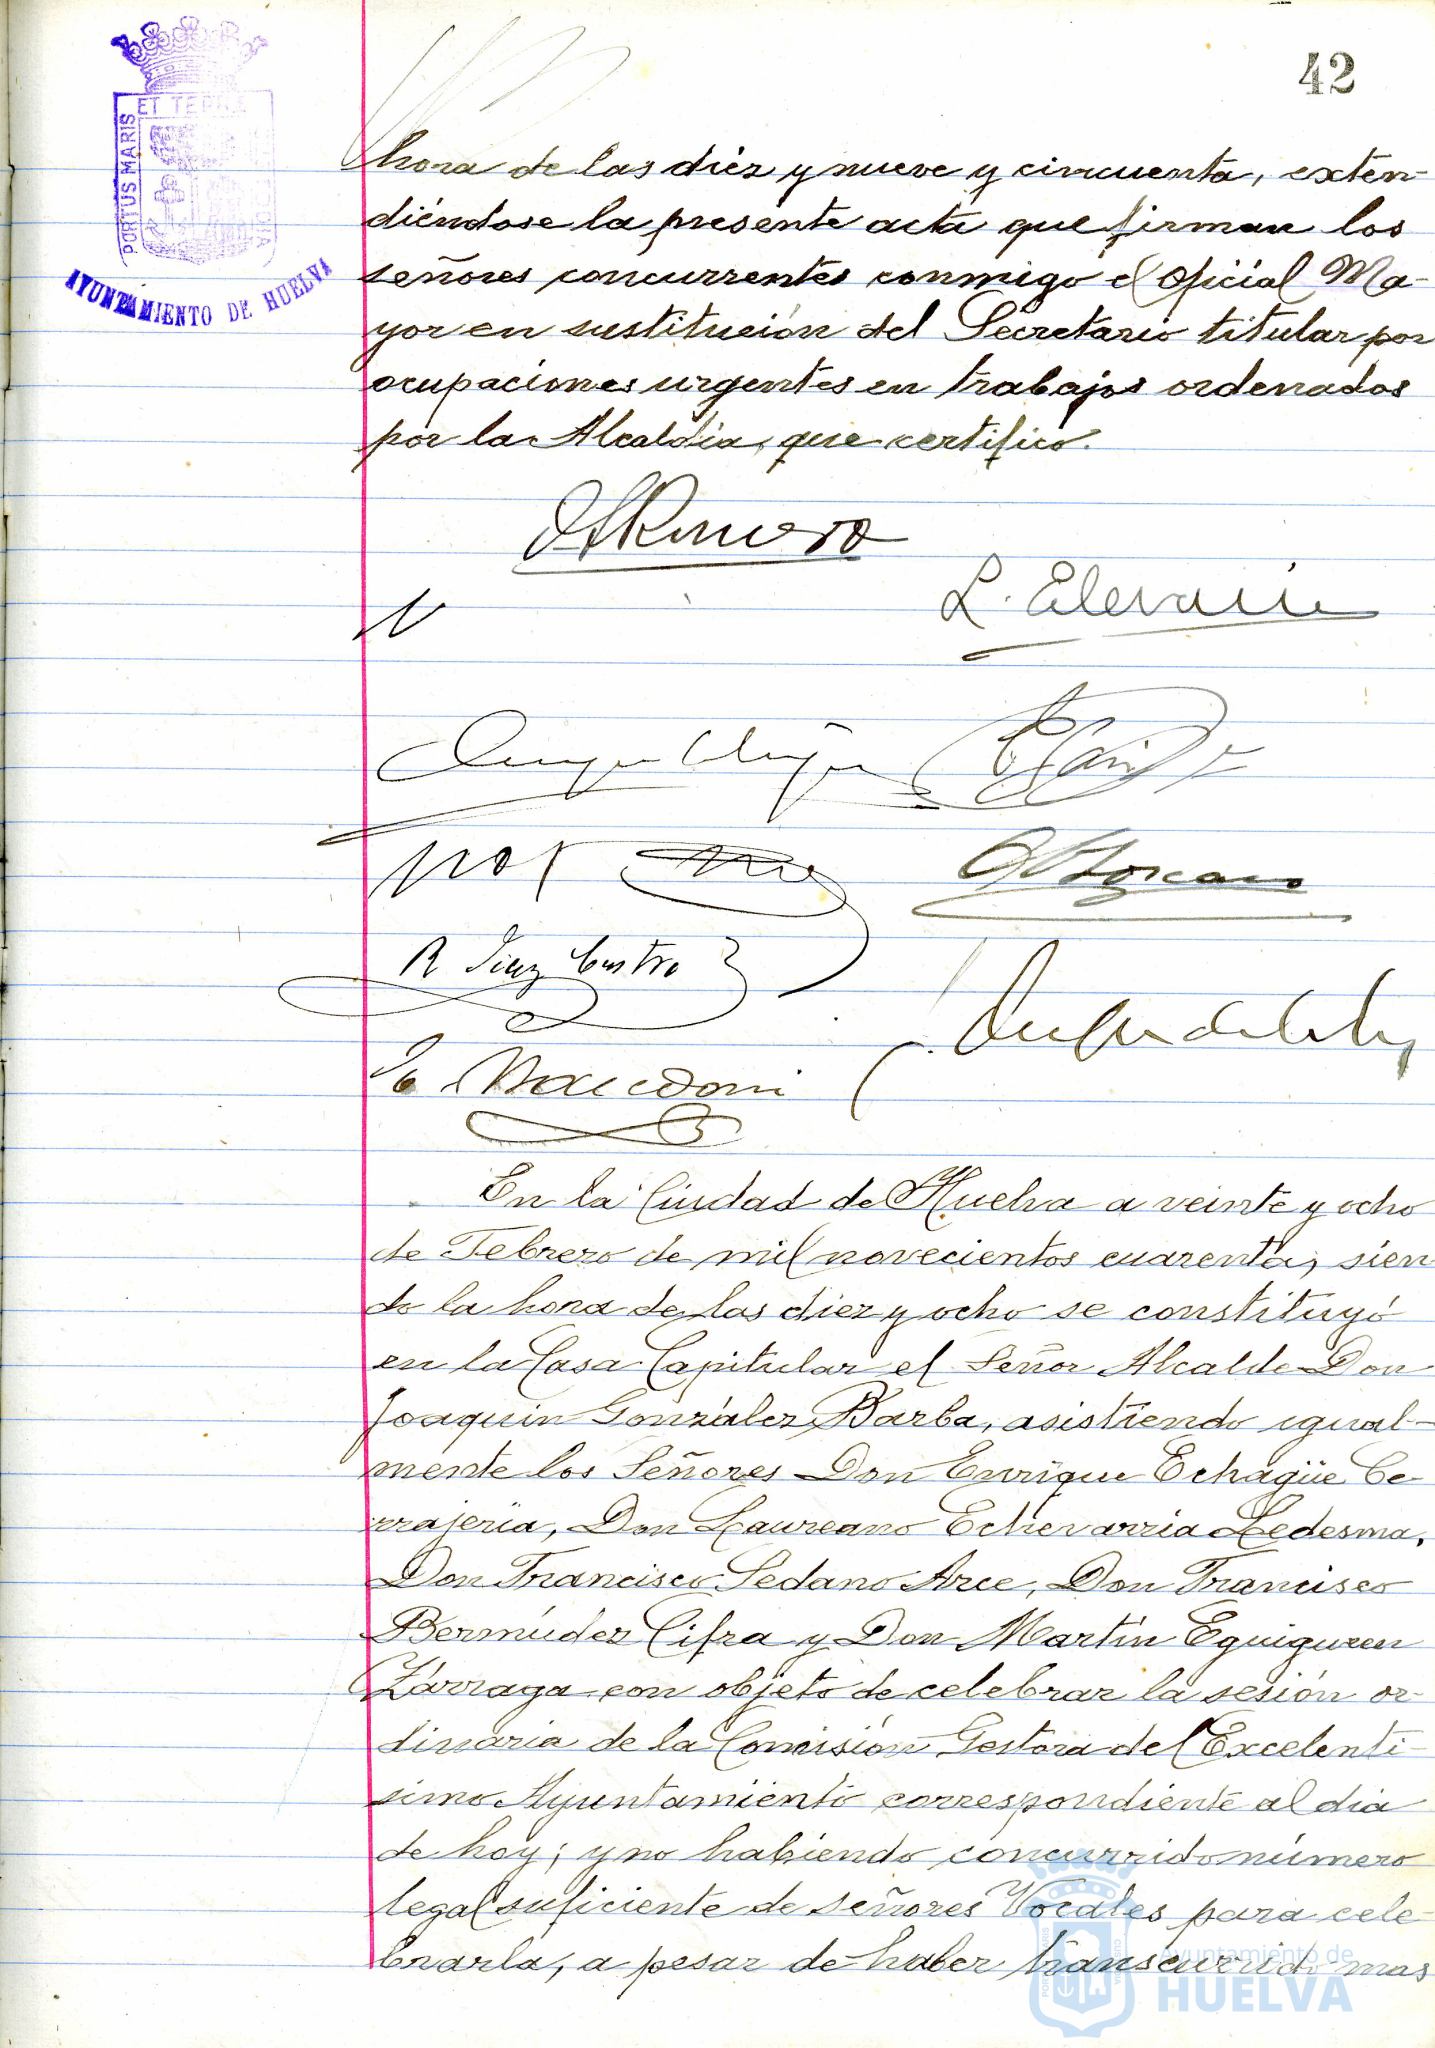 42
PORTUS MARIS ET TERRÆ CUSTODIA
AYUNTAMIENTO DE HUELVA
hora de las diez y nueve y cincuenta, exten-
diéndose la presente acta que firman los
señores concurrentes conmigo el Oficial Ma-
yor en sustitución del Secretario titular por
ocupaciones urgentes en trabajos ordenados
por la Alcaldía, que certifico.
Romero
L.
R Diaz Castro
En la Ciudad de Huelva a veinte y ocho
de Febrero de mil novecientos cuarenta, sien
do la hora de las diez y ocho se constituyó
en la Casa Capitular el Señor Alcalde Don
Joaquin González Barba, asistiendo igual-
mente los Señores Don Enrique Echagüe Ce-
rrajeria, Don Laureano Echevarria Ledesma,
Don Francisco Sedano Arce, Don Francisco
Bermúdez Cifra y Don Martín Eguiguren
Zárraga con objeto de celebrar la sesión or-
dinaria de la Comisión Gestora del Excelentí-
simo Ayuntamiento correspondiente al dia
de hoy; y no habiendo concurrido número
legal suficiente de señores Vocales para cele-
brarla, a pesar de haber transcurrido mas
Ayuntamiento de
HUELVA